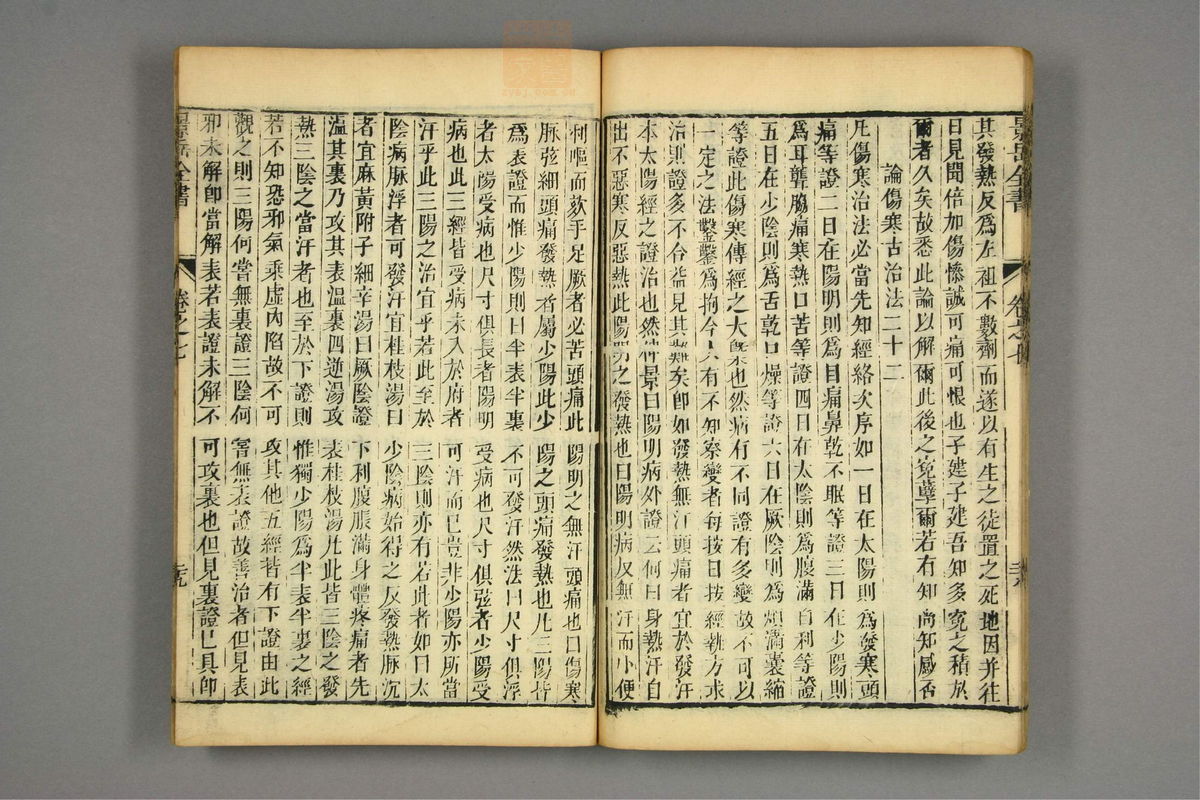 景岳全書
卷之七
其發熱反爲左祖不數劑而遂以有生之徒置之死地因并往
日見聞倍加傷慘誠可痛可恨也子建子建吾知多寃之積於
爾者久矣故悉此論以解爾此後之寃孽爾若有知尚知感否
論傷寒古治法二十二
凡傷寒治法必當先知經絡次序如一日在太陽則爲發寒頭
痛等證二日在陽明則爲目痛鼻乾不眠等證三日在少陽則
爲耳聾脇痛寒熱口苦等證四日在太陰則爲腹滿自利等證
五日在少陰則爲舌乾口燥等證六日在厥陰則爲煩滿囊縮
等證此傷寒傳經之大槩也然病有不同證有多變故不可以
一定之法鑿鑿爲拘今人有不知察變者每按日按經執方求
治則證多不合益見其難矣卽如發熱無汗頭痛者宜於發汗
本太陽經之證治也然仲景曰陽明病外證云何曰身熱汗自
出不惡寒反惡熱此陽明之發熱也曰陽明病反無汗而小便
利嘔而欬手足厥者必苦頭痛此陽明之無汗頭痛也曰傷寒
脉弦細頭痛發熱者屬少陽此少陽之頭痛發熱也凡三陽皆
爲表證而惟少陽則曰半表半裏不可發汗然法曰尺寸俱浮
者太陽受病也尺寸俱長者陽明受病也尺寸俱弦者少陽受
病也此三經皆受病未入於府者可汗而已豈非少陽亦所當
汗乎此三陽之治宜乎若此至於三陰則亦有若此者如曰太
陰病脉浮者可發汗宜桂枝湯曰少陰病始得之反發熱脉沉
者宜麻黃附子細辛湯曰厥陰證下利腹脹滿身體疼痛者先
溫其裏乃攻其表溫裏四逆湯攻表桂枝湯凡此皆三陰之發
熱三陰之當汗者也至於下證則惟獨少陽爲半表半裏之經
若不知恐邪氣乘虛內陷故不可攻其他五經皆有下證由此
觀之則三陽何嘗無裏證三陰何嘗無表證故善治者但見表
邪未解卽當解表若表證未解不可攻裏也但見裏證已具卽
景岳全書
卷之七